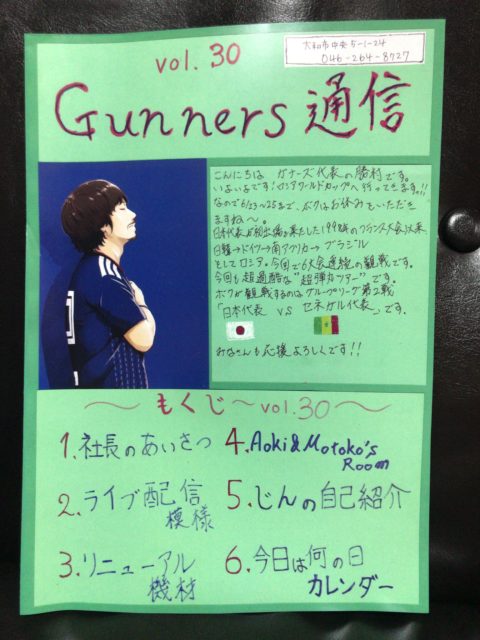 vol. 30
大和市中央5-1-24
046-264-8727
Gunners 通信
こんにちは ガナーズ代表の勝村です。
いよいよです!ロシアワールドカップへ行ってきます!!
なので6/23~25まで、ボクはお休みをいただき
ますね~。
日本代表が初出場を果たした1998年のフランス大会以来
日韓→ドイツ→南アフリカ→ブラジル
そしてロシア。今回で6大会連続の観戦です。
今回も超過酷な"超弾丸ツアー"です。
ボクが観戦するのはグループリーグ第2戦
「日本代表 VS セネガル代表」です。
みなさんも応援よろしくです!!
~もくじ~vol.30~
1.社長のあいさつ
2.ライブ配信
模様
3.リニューアル
機材
4.Aoki&Motoko's
Room
5.じんの自己紹介
6.今日は何の日
カレンダー